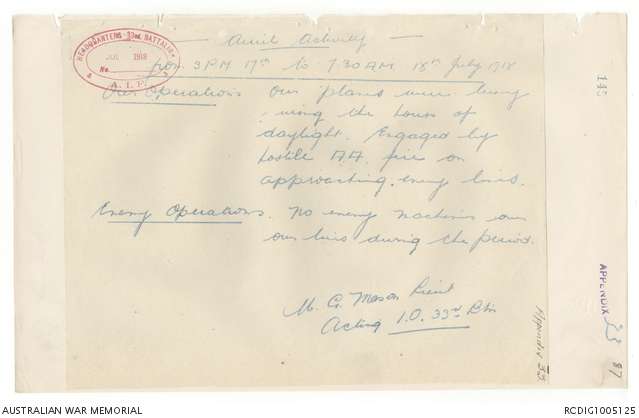 HEADQUARTERS 33rd BATTALION
JUL 1918
No.
A.I.F.
— Aerial Activity —
from 3 PM 17th to 7.30 AM 18th July 1918
Our Operations Our planes were busy
during the hours of
daylight. Engaged by
hostile A.A. fire on
approaching enemy lines.
Enemy Operations. No enemy machines over
our lines during the period.
M. G. Mason Lieut
Acting I.O. 33rd Btn
Appendix 33
143
APPENDIX 33
87
AUSTRALIAN WAR MEMORIAL
RCDIG1005125